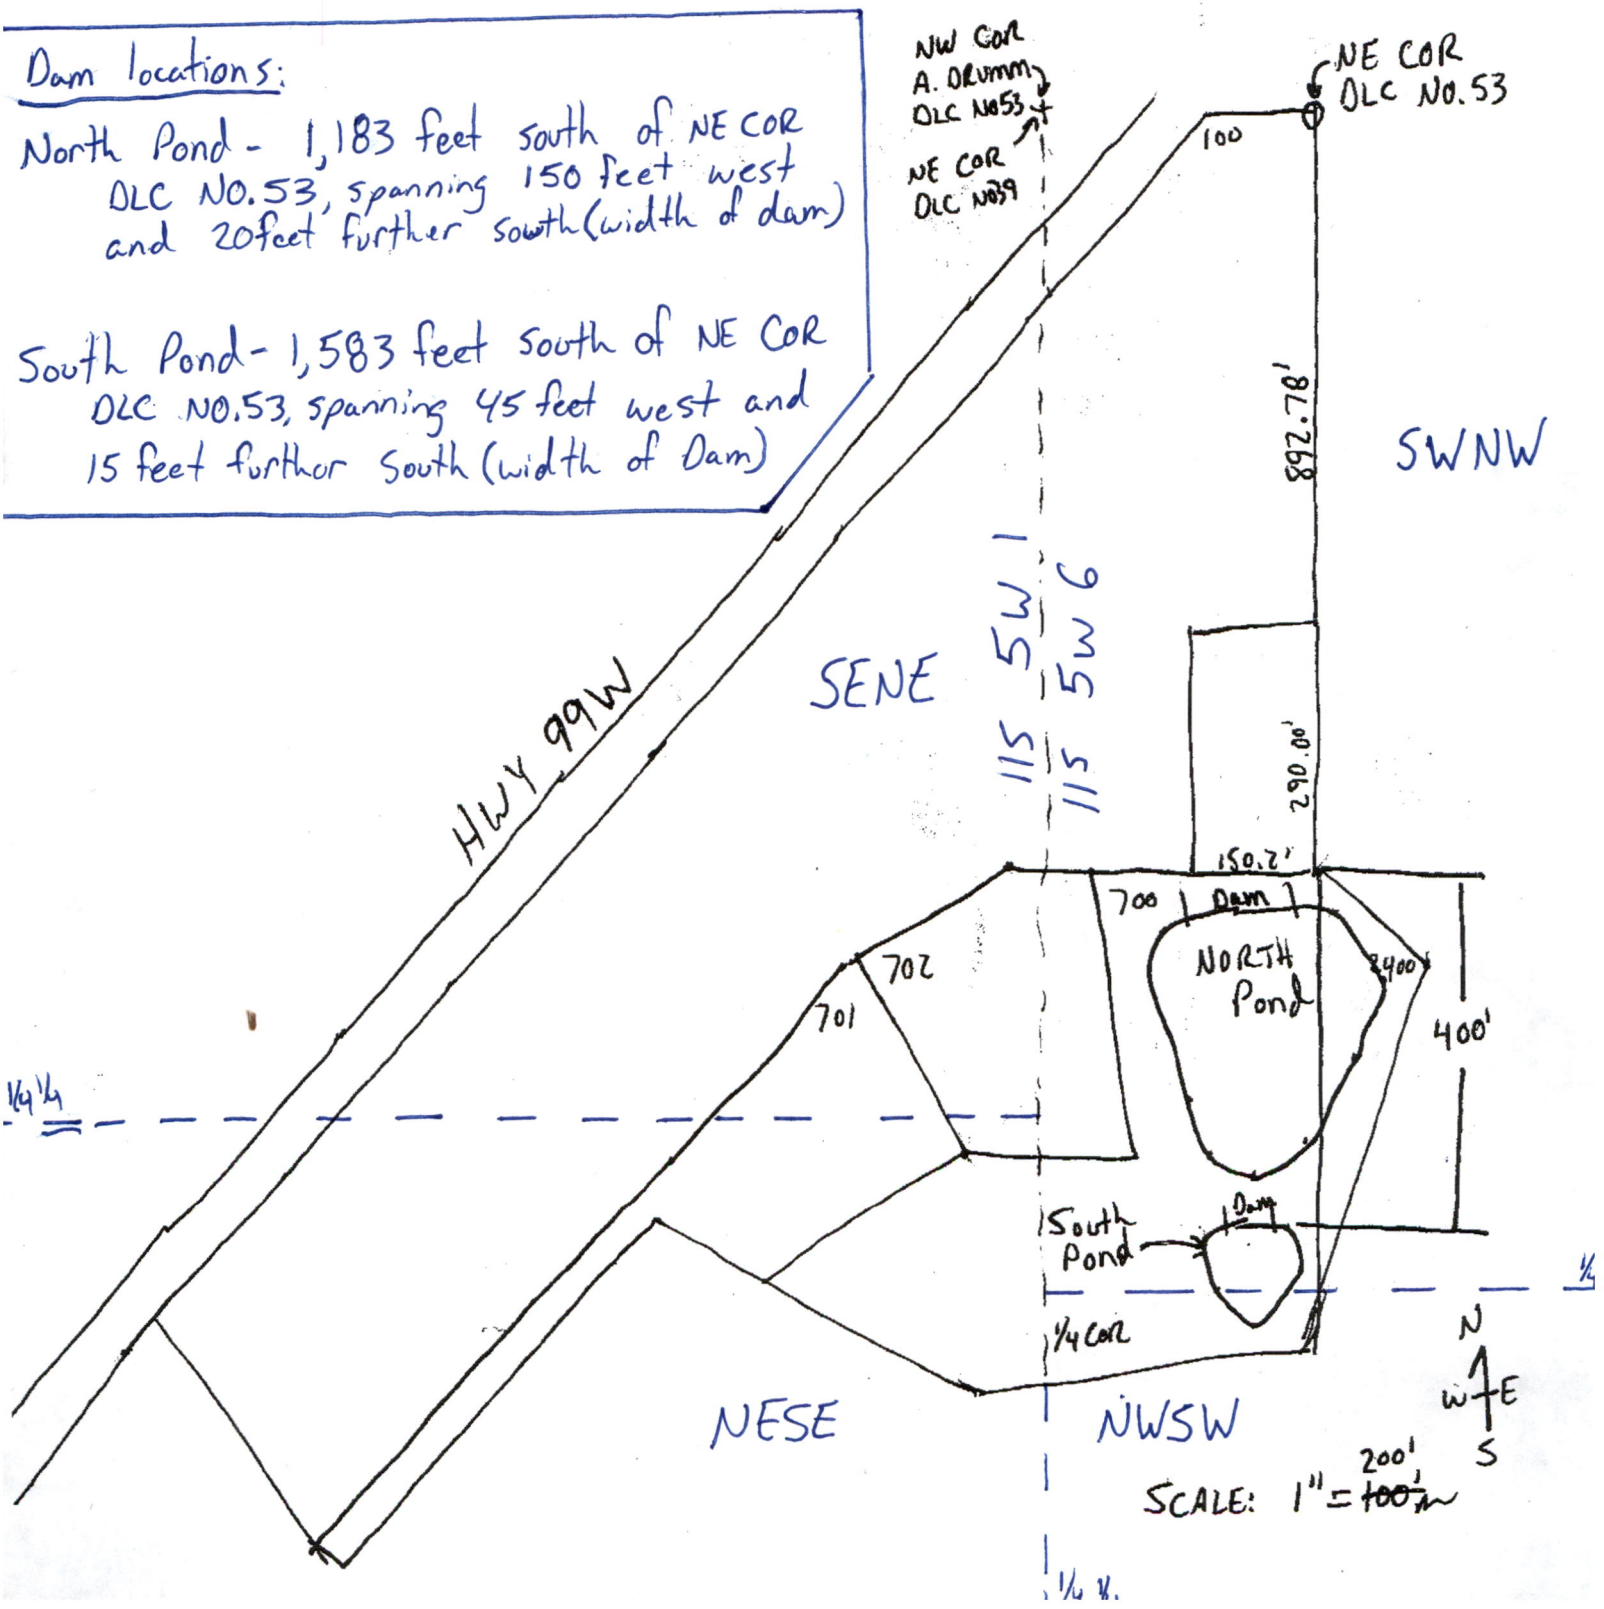 Dam locations:
North Pond - 1,183 feet south of NE COR
DLC NO.53, spanning 150 feet west
and 20feet further south (width of dam)
South Pond - 1,583 feet south of NE COR
DLC NO.53, spanning 45 feet west and
15 feet further South (width of Dam)
NW COR
A. DRUMM
DLC No53
NE COR
DLC No39
NE COR
DLC NO.53
100
892.78'
SWNW
HWY 99W
SENE
11S 5W 1
11S 5W 6
290.00'
150.2'
700
Dam
702
NORTH
Pond
400'
701
1/4 1/4
South
Pond
Dam
1/4
1/4 COR
N
W E
S
NESE
NWSW
200'
SCALE: 1" = 100'